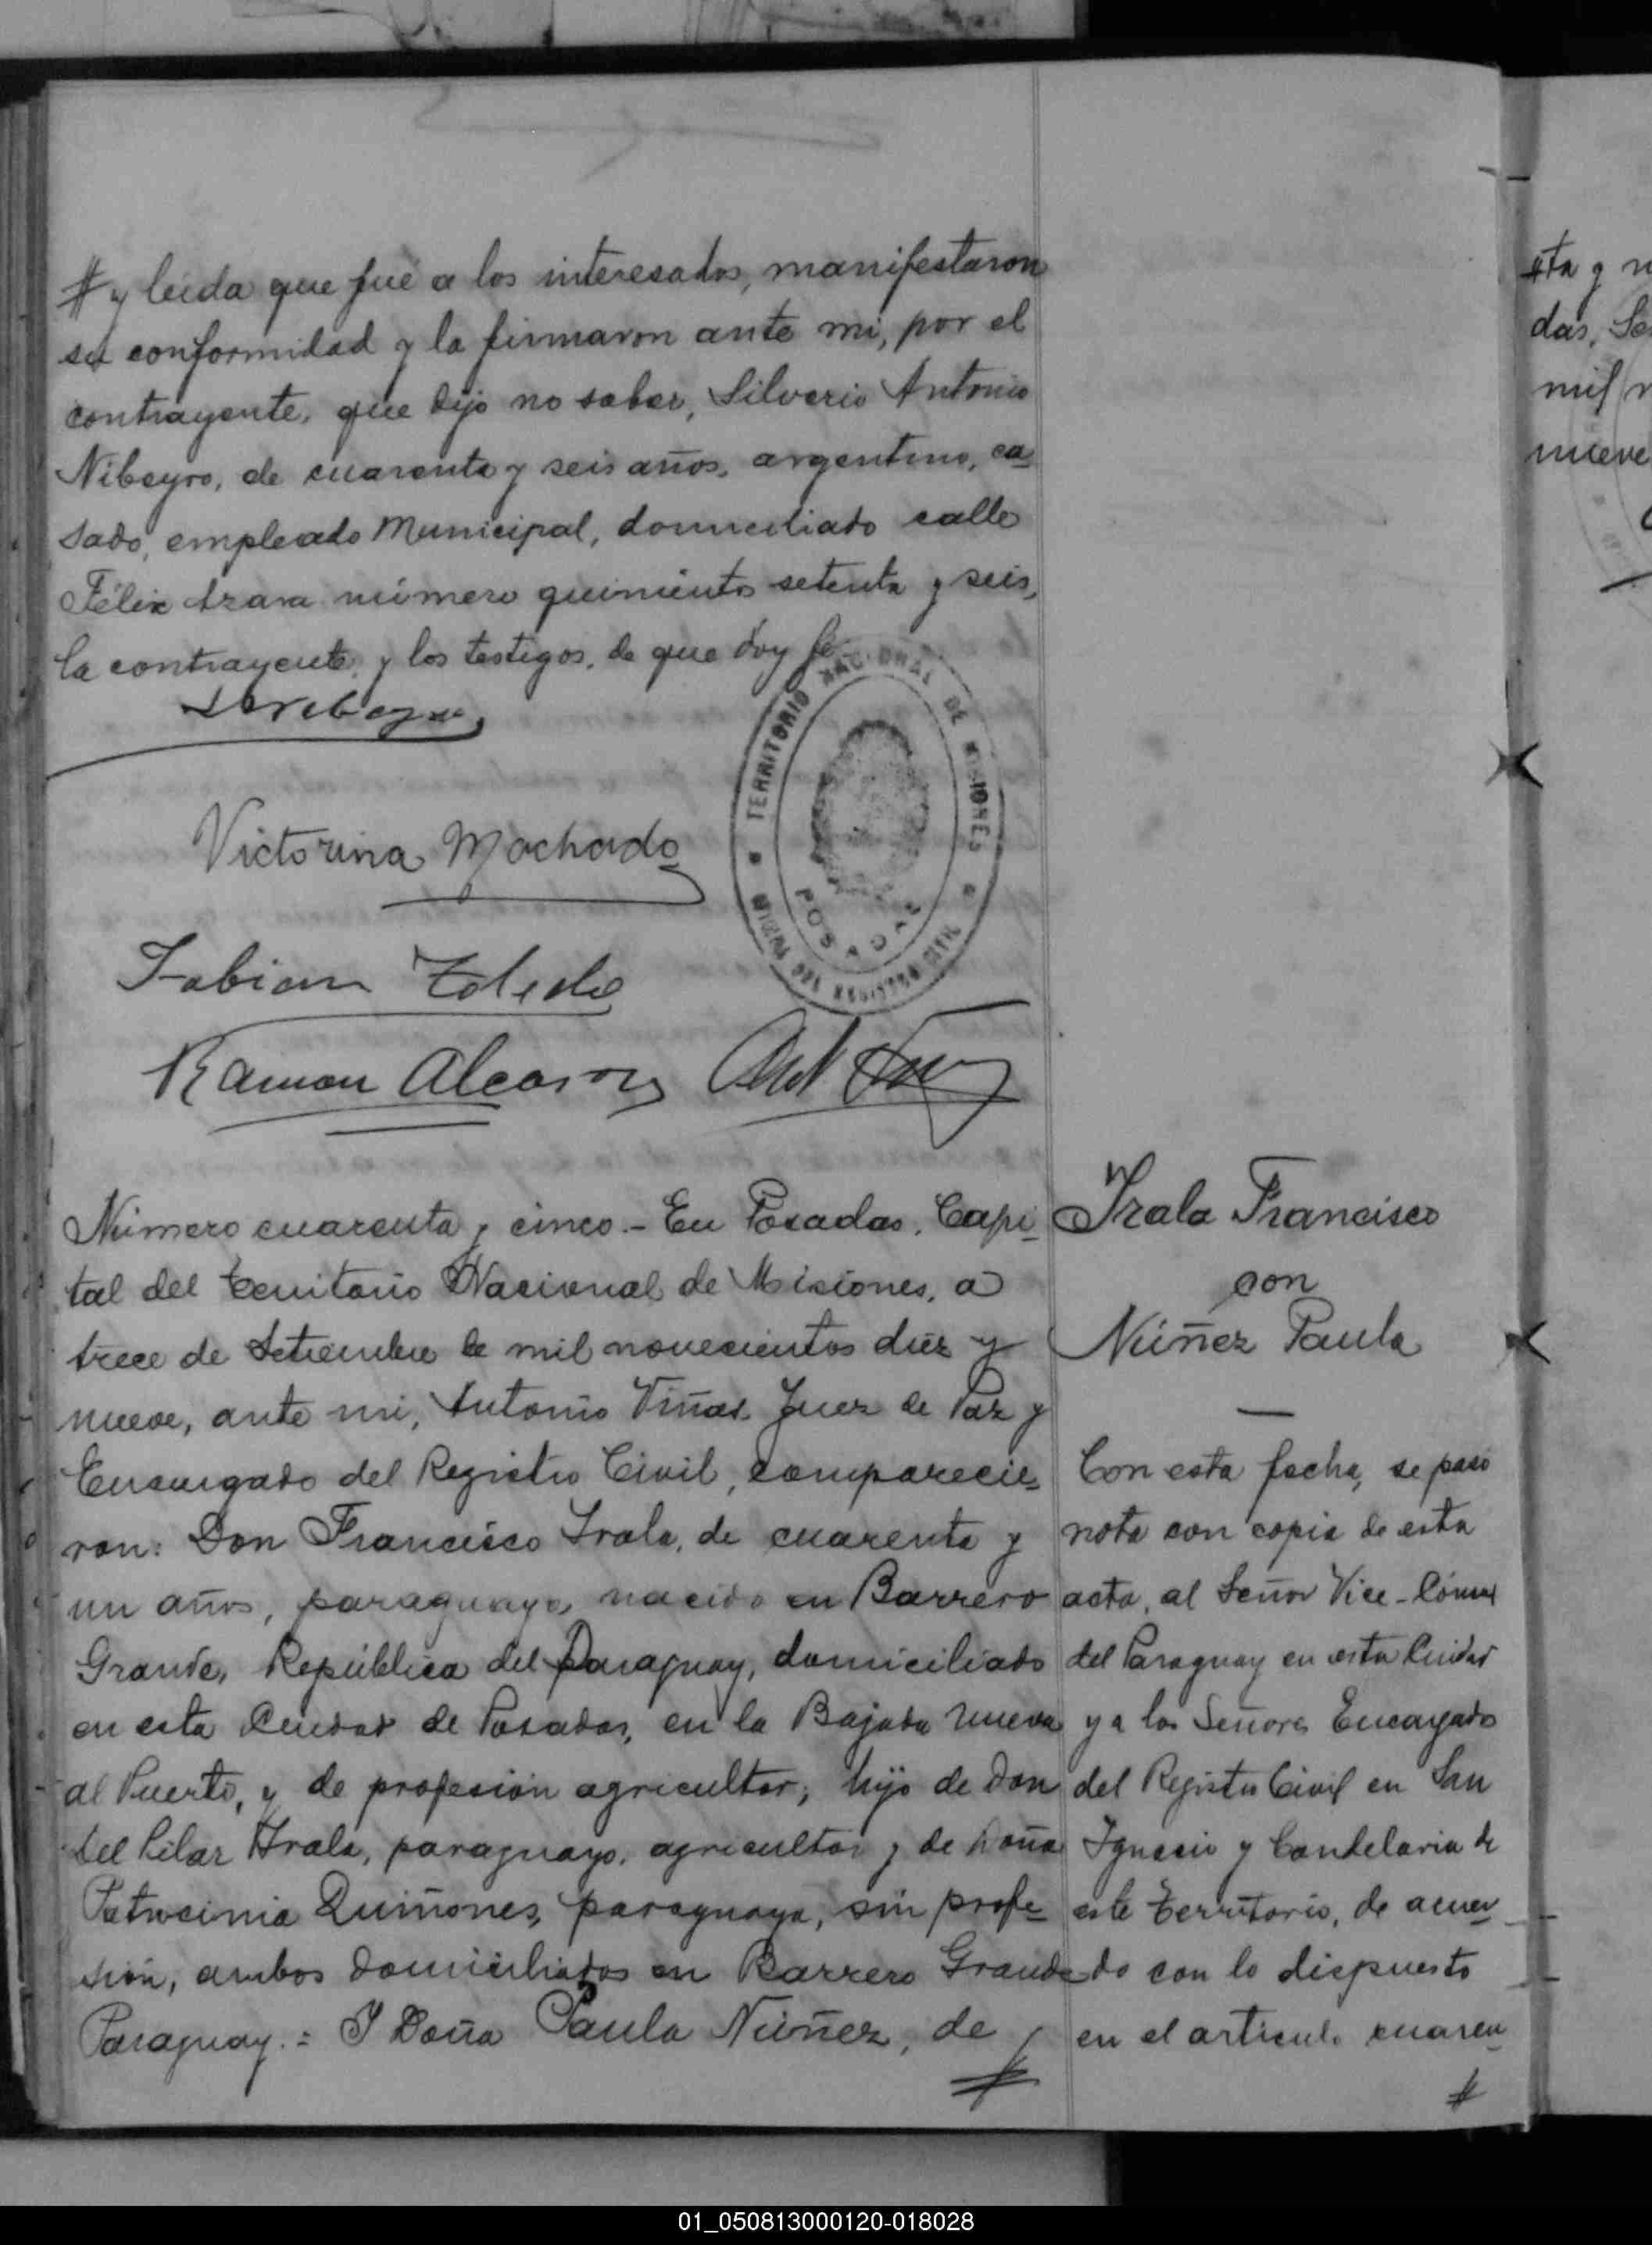 # y leida que fué a los interesados, manifestaron
su conformidad y la firmaron ante mi, por el
contrayente, que dijo no saber, Silverio Antonio
Nibeyro, de cuarenta y seis años, argentino, ca-
sado, empleado Municipal, domiciliado calle
Félix Azara número quinientos setenta y seis,
la contrayente, y los testigos, de que doy fé.
TERRITORIO NACIONAL DE MISIONES
POSADAS
DEL REGISTRO CIVIL
Victorina Machado
Fabian Toledo
Ramon
Número cuarenta y cinco.- En Posadas, Capi-
tal del territorio Nacional de Misiones, a
trece de Setiembre de mil novecientos diez y
nueve, ante mi, Antonio Viñas, Juez de Paz y
Encargado del Registro Civil, comparecie-
ron: Don Francisco Irala, de cuarenta y
un años, paraguayo, nacido en Barrero
Grande, República del Paraguay, domiciliado
en esta Ciudad de Posadas, en la Bajada nueva
al Puerto, y de profesión agricultor; hijo de Don
del Pilar Irala, paraguayo, agricultor y de Doña
Patrocinia Quiñones, paraguaya, sin profe-
sión, ambos domiciliados en Barrero Grande
Paraguay.= Y Doña Paula Núñez, de
#
Irala Francisco
con
Núñez Paula
—
Con esta fecha, se pasó
nota con copia de esta
acta, al Señor Vice-Cónsul
del Paraguay en esta Ciudad
y a los Señores Encargados
del Registro Civil en San
Ignacio y Candelaria de
este territorio, de acuer-
do con lo dispuesto
en el articulo cuaren-
#
#ta y
das, Se
mil
nueve
01_050813000120-018028